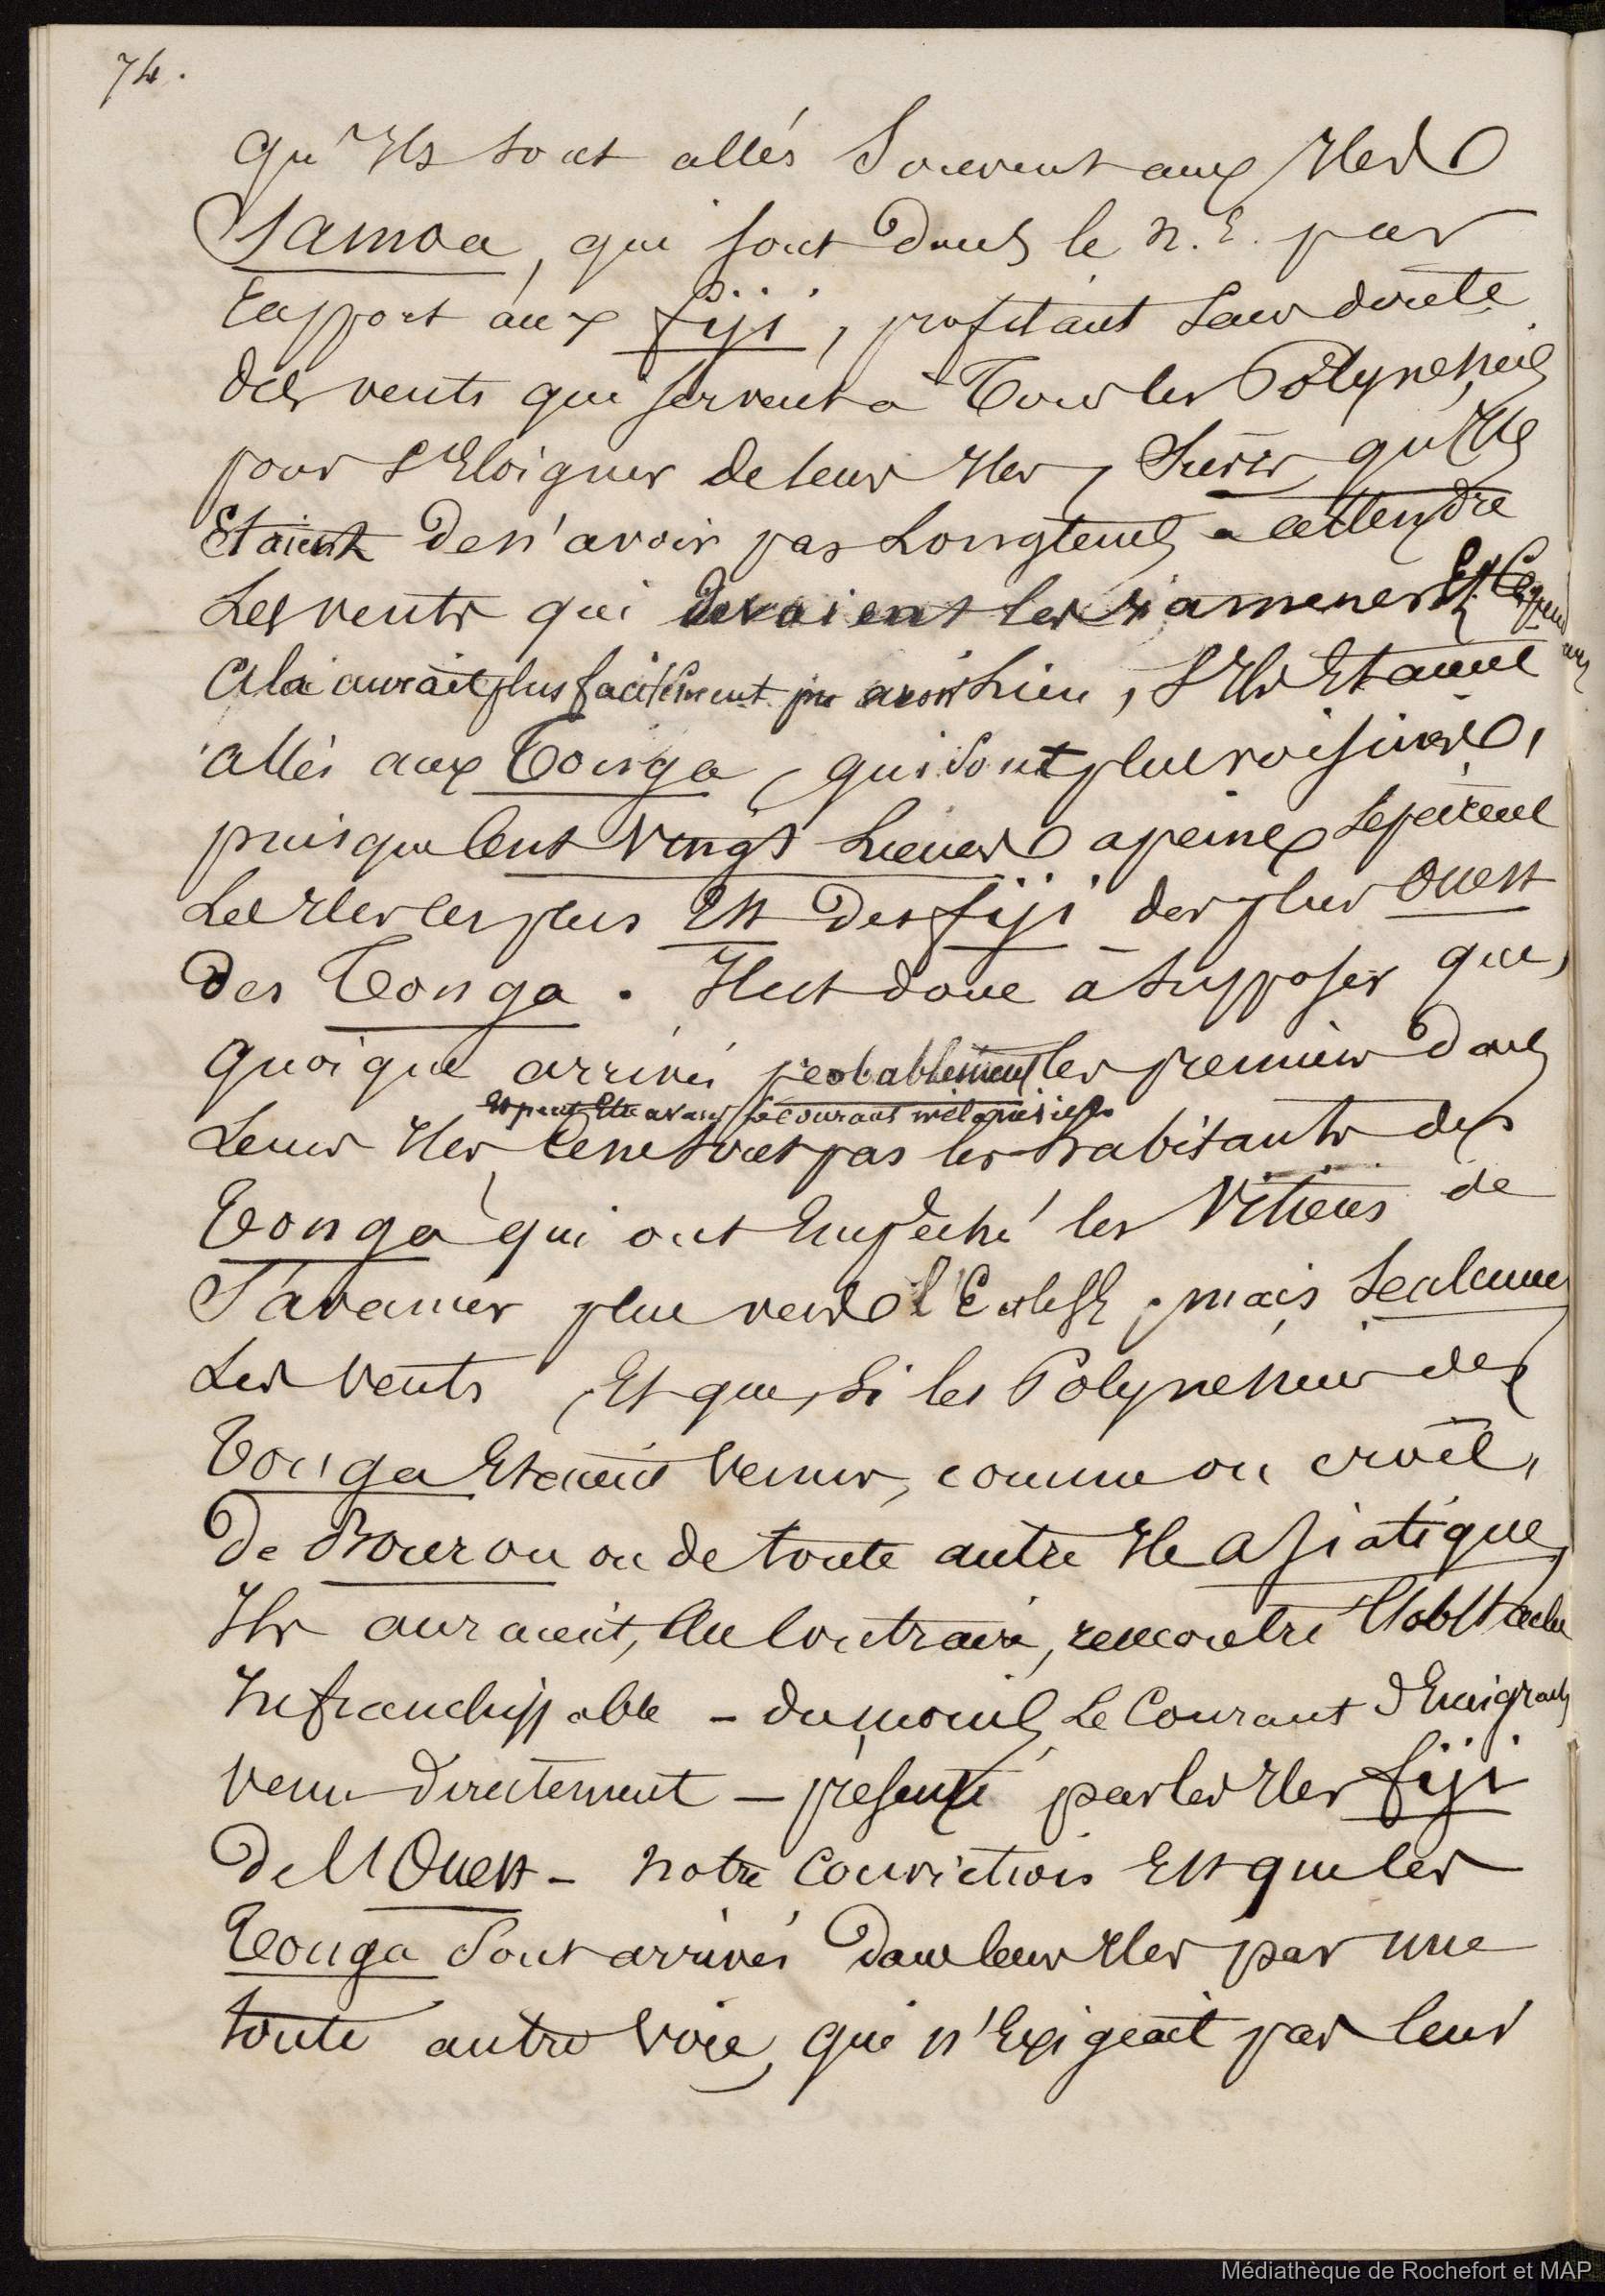 74.
qu'Ils sont allés Souvent aux Iles
Samoa, qui sont dans le N.E. par
rapport aux fiji, profitant sans doute
des vents qui servent à Tous les Polynésiens
pour s'Eloigner de leurs Iles, Surs qu'Ils
Etaient de n'avoir pas Longtems a attendre
Les vents qui devaient les ramener. Et Cependant
Cela aurait plus facilement pu avoir Lieu, s'Ils Etaient
allés aux Tonga, qui sont plus voisines,
puisque Cent Vingt Lieues a peine Séparent
Les Iles les plus Est des fiji des plus Ouest
des Tonga. Il est donc à supposer que,
quoique arrivés probablement les premiers dans
Et peut Etre avant le courant mélanésien
Leurs Iles, ce ne sont pas les habitants des
Tonga qui ont Empêché les Vitiens de
S'avancer plus vers l'Est, mais Seulement
Les Vents, Et que, Si les Polynésiens des
Tonga Etaient Venus, comme on croit,
de Bourou ou de toute autre Ile asiatique,
Ils auraient, Au Contraire, rencontré l'obstacle
Infranchissable - du moins Le Courant d'Emigrants
venu directement - présenté par les Iles fiji
de l'Ouest - Notre Conviction Est que les
Tonga Sont arrivés dans leurs Iles par une
toute autre Voie, qui n'Exigeait pas leur
Médiathèque de Rochefort et MAP